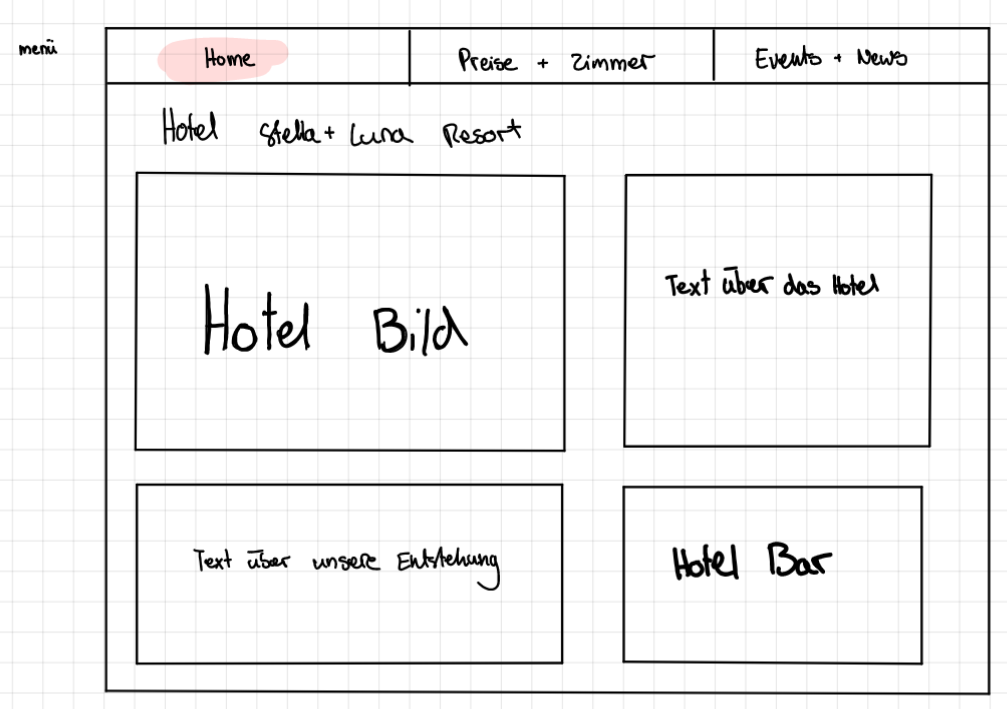 menü
Home
Preise + Zimmer
Events + News
Hotel Stella + Luna Resort
Hotel Bild
Text über das Hotel
Text über unsere Entstehung
Hotel Bar